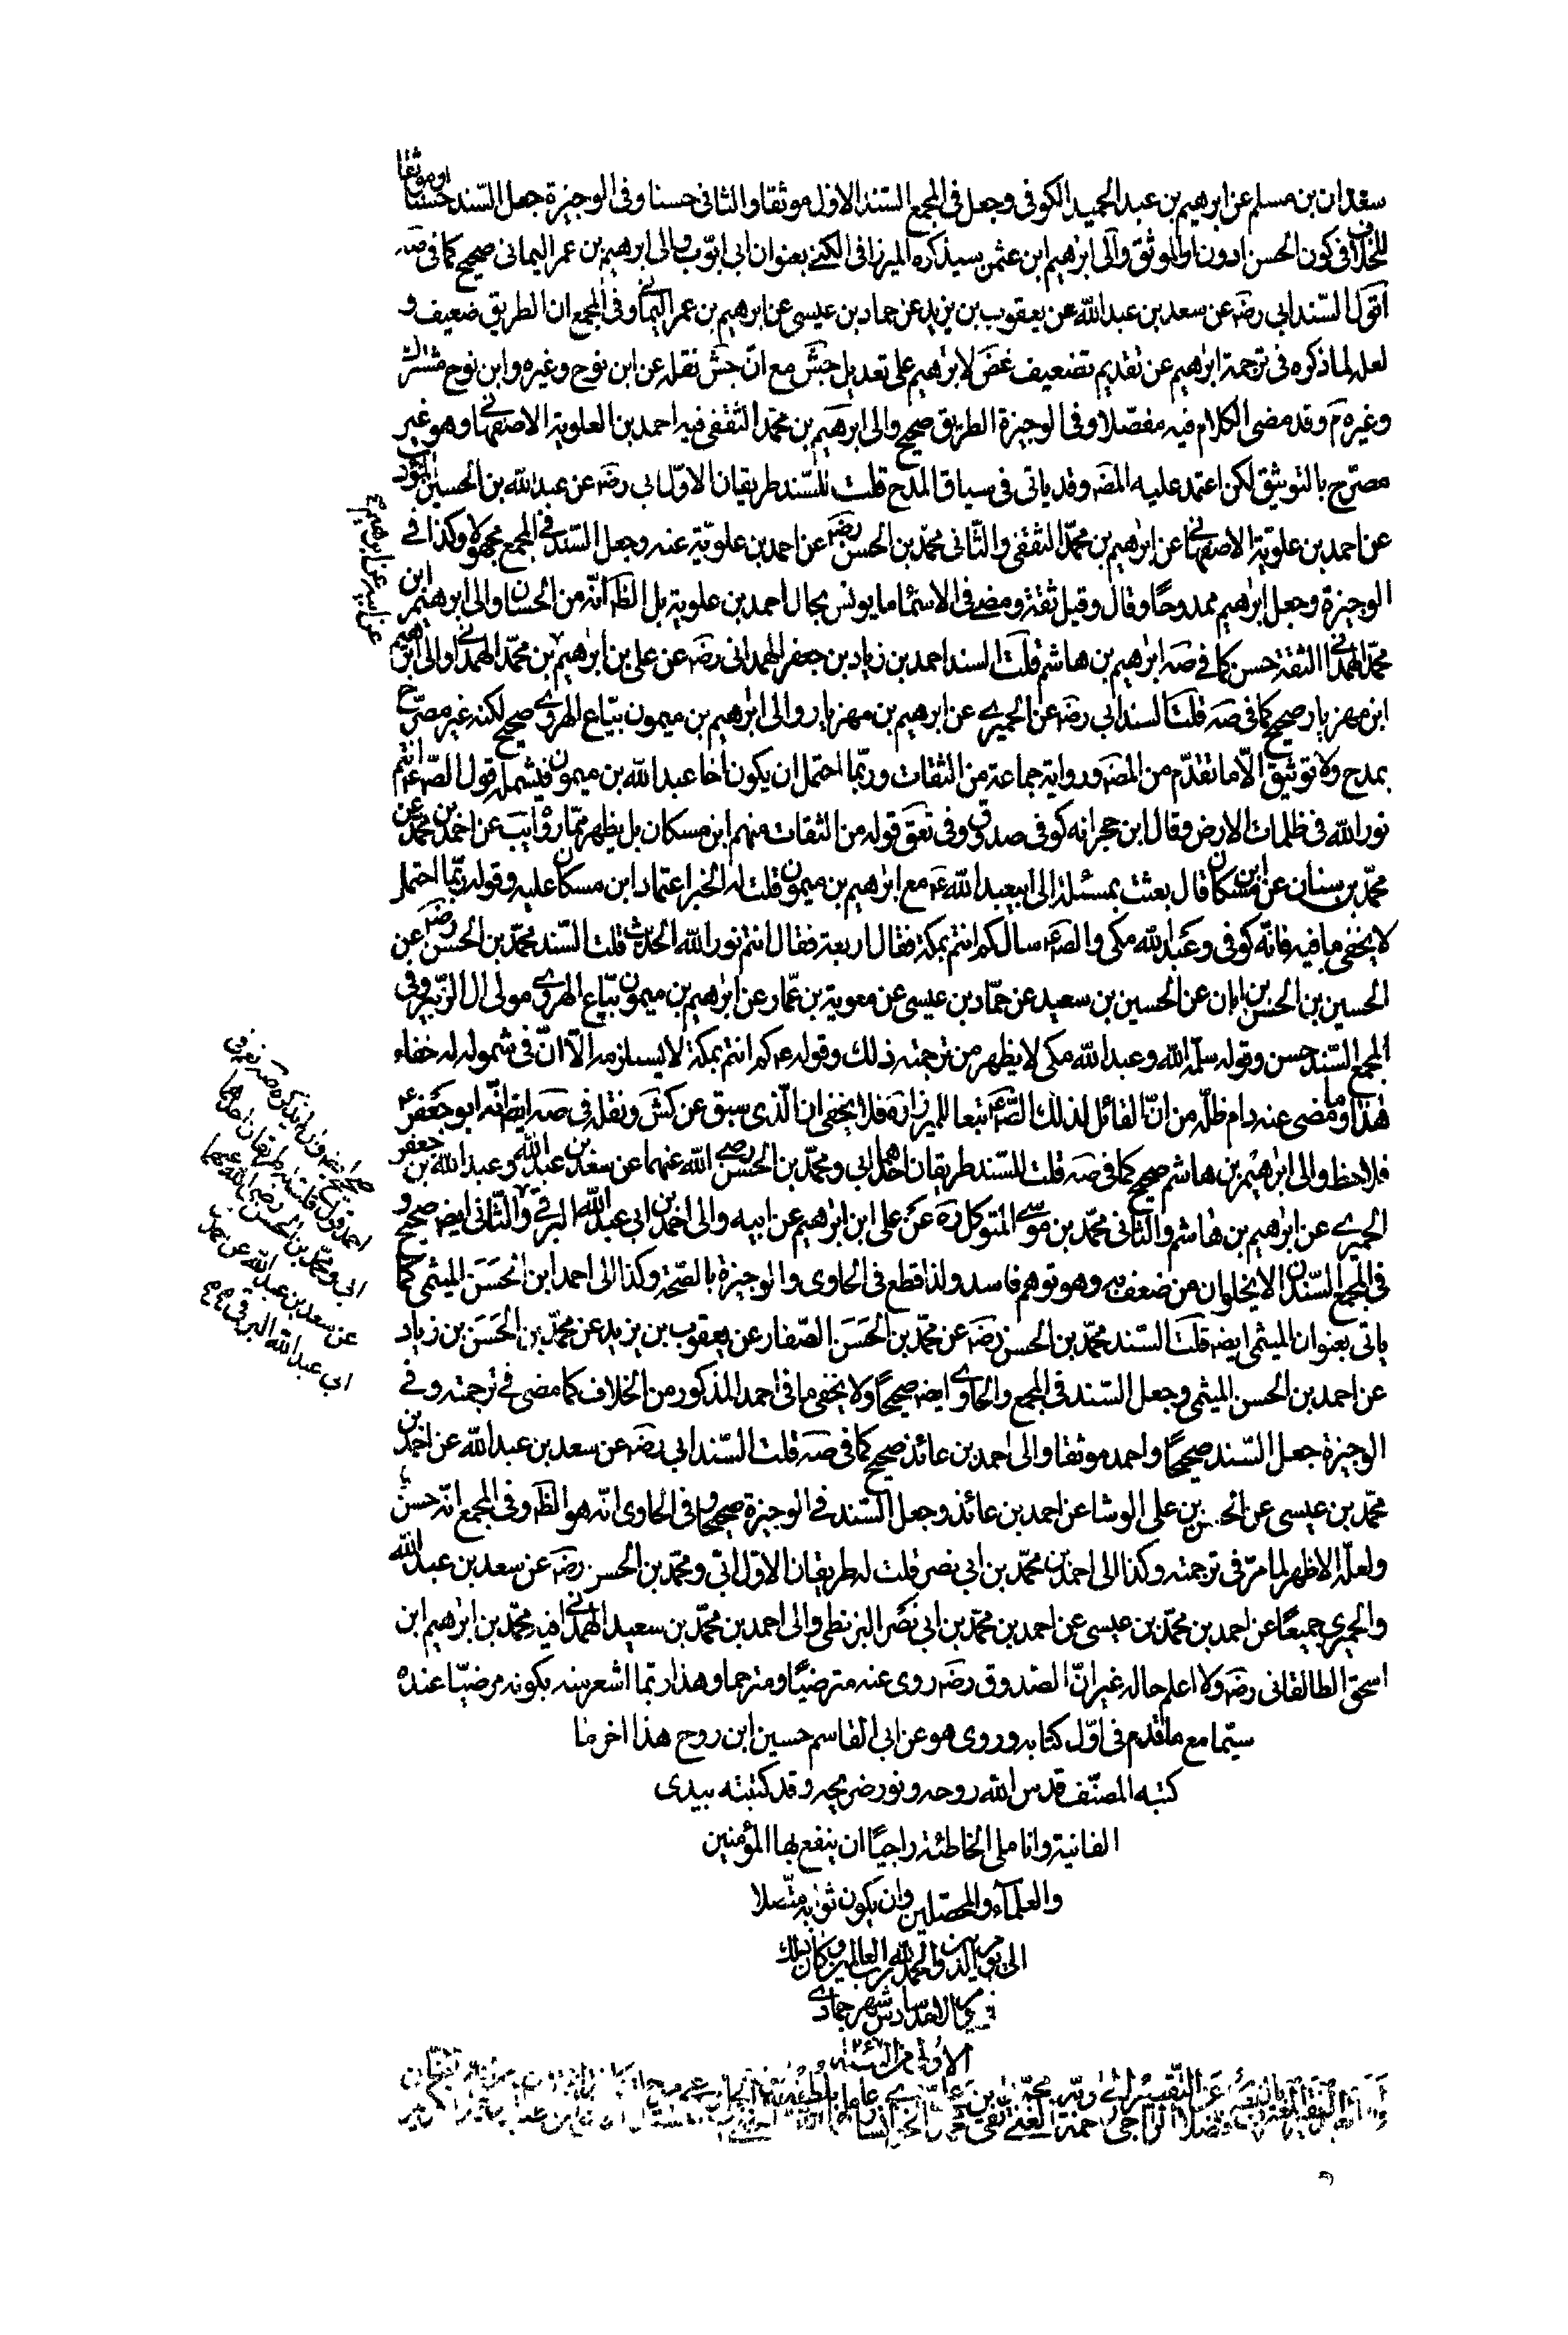 سعدان بن مسلم عن ابرهيم بن عبد الحميد الكوفى وجعل فى المجمع السّند الاول موثقا والثانى حسنا وفى الوجيزة جعل السّند حسنا اوموثقا
للخلاف فى كون الحسن ادون او الموثق والى ابرهيم ابن عثمن سيذكره الميرزا فى الكنى بعنوان ابى ايّوب والى ابرهيم بن عمر اليمانى صحيح كما فى صه
اقول السّند ابي رضه عن سعد بن عبد الله عن يعقوب بن يزيد عن حماد بن عيسى عن ابرهيم بن عمر اليمانى وفى المجمع ان الطريق ضعيف و
لعله لما ذكره فى ترجمة ابرهيم عن تقديم تضعيف غض لابرهيم على تعديل جش مع انّ جش نقله عن ابن نوح وغيره وابن نوح مشترك
وغيره م وقد مضى الكلام فيه مفصّلا وفى الوجيزة الطريق صحيح والى ابرهيم بن محمّد الثقفى فيه احمد بن العلوية الاصفهانى وهو غير
مصرّح بالتوثيق لكن اعتمد عليه المصه وقد ياتى فى سياق المدح قلت للسّند طريقان الاوّل ابى رضه عن عبد الله بن الحسين المؤدب
عن احمد بن علوية الاصفهانى عن ابرهيم بن محمّد الثقفى والثّانى محمّد بن الحسن رضه عن احمد بن علويّة عنه وجعل السّند فى المجمع مجهولا وكذا فى
الوجيزة وجعل ابرهيم ممدوحًا وقال وقيل ثقة ومضى فى الاسماء ما يونس بحال احمد بن علوية بل الظه انّه من الحسان والى ابرهيم ابن
محمّد الهمدانى الثقة حسن كما فى صه ابرهيم بن هاشم قلت السند احمد بن زياد بن جعفر الهمدانى رضه عن على بن ابرهيم بن محمّد الهمدانى والى ابرهيم
ابن مهزيار صحيح كما فى صه قلت السند ابى رضه عن الحميرى عن ابرهيم بن مهزيار والى ابرهيم بن ميمون بيّاع الهروى صحيح لكنه غير مصرّح
بمدح ولا توثيق الّا ما تقدّم من المصه ورواية جماعة من الثقات وربّما احتمل ان يكون اخا عبد الله بن ميمون فيشمله قول الصّه ع انتم
نور الله فى ظلمات الارض وقال ابن حجر انه كوفى صدوق وفى تعق قوله من الثقات منهم ابن مسكان بل يظهر ممّا رواه يب عن احمد بن محمّد عن
محمّد بن سنان عن ابن مسكان قال بعثت بمسئلة الى ابيعبد الله ع مع ابرهيم بن ميمون قلت له الخبر اعتماد ابن مسكان عليه وقوله ربّما احتمل
لا يخفى ما فيه فانّه كوفى وعبد الله مكى والصه ع سال كم انتم بمكة فقال اربعة فقال انتم نور الله الحديث قلت السّند محمّد بن الحسن رضه عن
الحسين بن الحسن بن ابان عن الحسين بن سعيد عن حمّاد بن عيسى عن معوية بن عمّار عن ابرهيم بن ميمون بيّاع الهروى مولى ال الزبير وفى
المجمع السّند حسن وقوله سلّمه الله وعبد الله مكى لا يظهر من ترجمته ذلك وقوله ع كم انتم بمكة لا يستلزمه الّا انّ فى شموله له خفاء
هذا وما مضى عنه دام ظلّه من انّ القائل لذلك الصّه ع تبعا للميرزا ره فلا يخفى ان الّذى سبق عن كش ونقله فى صه ايضا انّه ابو جعفر ع
فلاحظ والى ابرهيم بن هاشم صحيح كما فى صه قلت للسّند طريقان احدهما ابى ومحمّد بن الحسن رضى الله عنهما عن سعد بن عبد الله وعبد الله بن جعفر
الحميرى عن ابرهيم بن هاشم والثانى محمّد بن موسى المتوكل ره عن على ابن ابرهيم عن ابيه والى احمد بن ابى عبد الله البرقى والثانى ايضه صحيح و
فى المجمع السّندان الا يخلوان من ضعف وهو توهم فاسد ولذا قطع فى الحاوى والوجيزة بالصّحة وكذا الى احمد ابن الحسن الميثمى كما
ياتى بعنوان الميثمى ايضه قلت السّند محمّد بن الحسن رضه عن محمّد بن الحسن الصّفار عن يعقوب بن يزيد عن محمّد بن الحسن بن زياد
عن احمد بن الحسن الميثمى وجعل السّند فى المجمع والحاوى ايضه صحيحًا ولا يخفى ما فى احمد المذكور من الخلاف كما مضى فى ترجمته وفى
الوجيزة جعل السّند صحيحًا واحمد موثقا والى احمد بن عائذ صحيح كما فى صه قلت السّند ابى رضه عن سعد بن عبد الله عن احمد بن
محمّد بن عيسى عن الحسن بن على الوشا عن احمد بن عائذ وجعل السّند فى الوجيزة صحيحا وفى الحاوى انّه هو الظه وفى المجمع انّه حسن
ولعلّه الاظهر لما مرّ فى ترجمته وكذا الى احمد بن محمّد بن ابى نصر قلت له طريقان الاوّل ابى ومحمّد بن الحسن رضه عن سعد بن عبد الله
والحميرى جميعًا عن احمد بن محمّد بن عيسى عن احمد بن محمّد بن ابى نصر البزنطى والى احمد بن محمّد بن سعيد الهمدانى فيه محمّد بن ابرهيم ابن
اسحق الطالقانى رضه ولا اعلم حاله غير انّ الصّدوق رضه روى عنه مترضيًا ومترحما وهذا ربّما اشعر منه بكونه مرضيّا عنده
سيّما مع ما قدم فى اوّل كتابه وروى هو عن ابى القاسم حسين ابن روح هذا اخر ما
كتبه المصنّف قدس الله روحه ونور ضريحه وقد كتبته بيدى
الفانية واناملى الخاطئة راجيًا ان ينفع بها المؤمنين
والعلماء والمحصّلين وان يكون ثوابه متّصلا
الى يوم الدين والحمد لله رب العالمين وكان ذلك
السادس شهر جمادى
الاولى من السنة
عن ابيه عن ابرهيم ع
احمد
قلت له طريقان احدهما
ابى ومحمّد بن الحسن رضى الله عنهما
عن سعد بن عبد الله عن احمد بن
ابى عبد الله البرقى